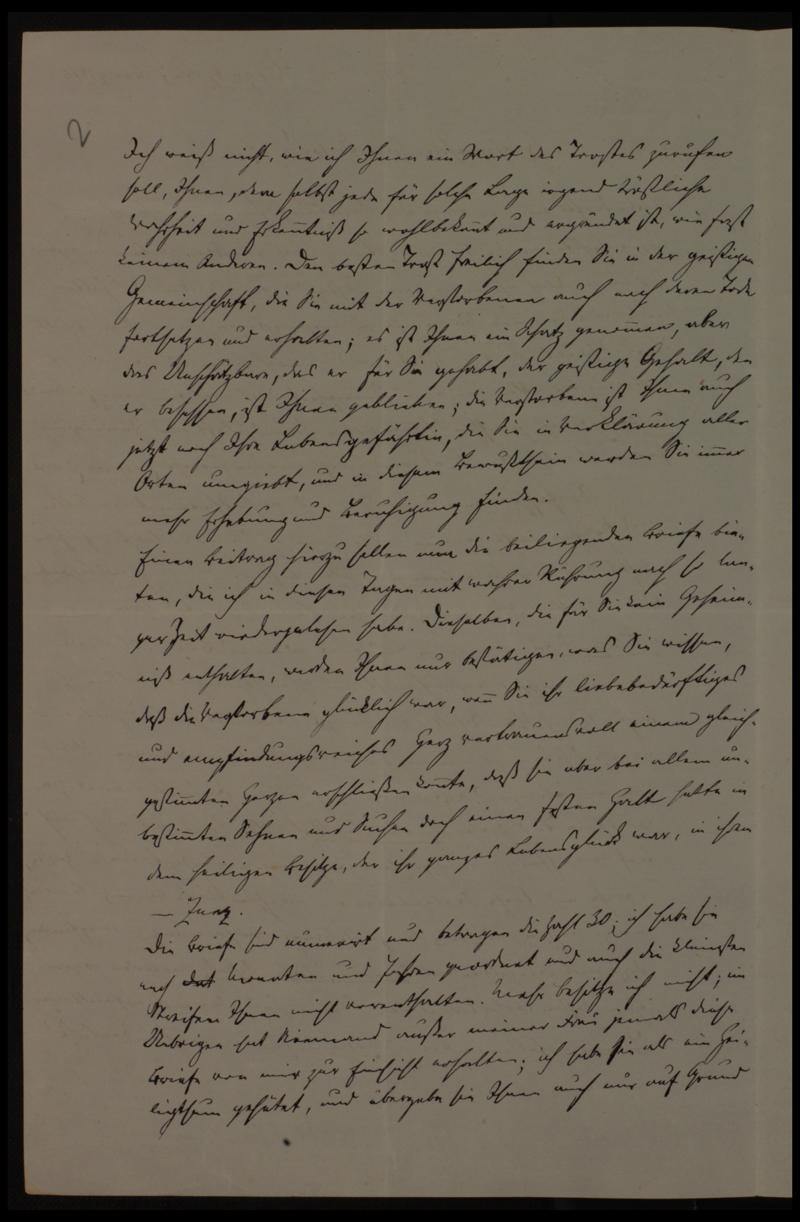 2
Ich weiß nicht, wie ich Ihnen ein Wort des Trostes zurufen
soll, Ihnen, dem selbst jede für solche Lage irgend tröstliche
Wahrheit und Erkenntniß so wohlbekannt und ergründet ist, wie fast
keinem Anderen. Den besten Trost freilich finden Sie in der geistigen
Gemeinschaft, die Sie mit der Verstorbenen auch nach deren Tode
fortsetzen und erhalten; es ist Ihnen ein Schatz genommen, aber
das Unschätzbare, das er für Sie gehabt, der geistige Gehalt, den
er besessen, ist Ihnen geblieben; die Verstorbene ist Ihnen auch
jetzt noch Ihre Lebensgefährtin, die Sie in Verklärung aller
Orten umgiebt, und in diesem Bewußtsein werden Sie immer
mehr Erhebung und Beruhigung finden.
Einen Beitrag hierzu sollen nun die beiliegenden Briefe bie-
ten, die ich in diesen Tagen mit wahrer Rührung nach so lan-
ger Zeit wiedergelesen habe. Dieselben, die für Sie kein Geheim-
niß enthalten, werden Ihnen nur bestätigen, was Sie wissen,
daß die Verstorbene glücklich war, wenn Sie ihr liebebedürftiges
und empfindungsreiches Herz vertrauensvoll einem gleich-
gestimmten Herzen erschließen konnte, daß sie aber bei allem un-
bestimmten Sehnen und Suchen doch einen festen Halt hatte in
dem heiligen Besitze, der ihr ganzes Lebensglück war, in ihrem
— Zunz.
Die Briefe sind numerirt und betragen die Zahl 30; ich habe sie
nach Dat Monaten und Jahren geordnet und auch die kleinsten
Streifen Ihnen nicht vorenthalten. Mehr besitze ich nicht; im
Uebrigen hat Niemand außer meiner Frau jemals diese
Briefe von mir zur Einsicht erhalten; ich habe sie als ein Hei-
ligthum gehütet, und übergebe sie Ihnen auch nur auf Grund